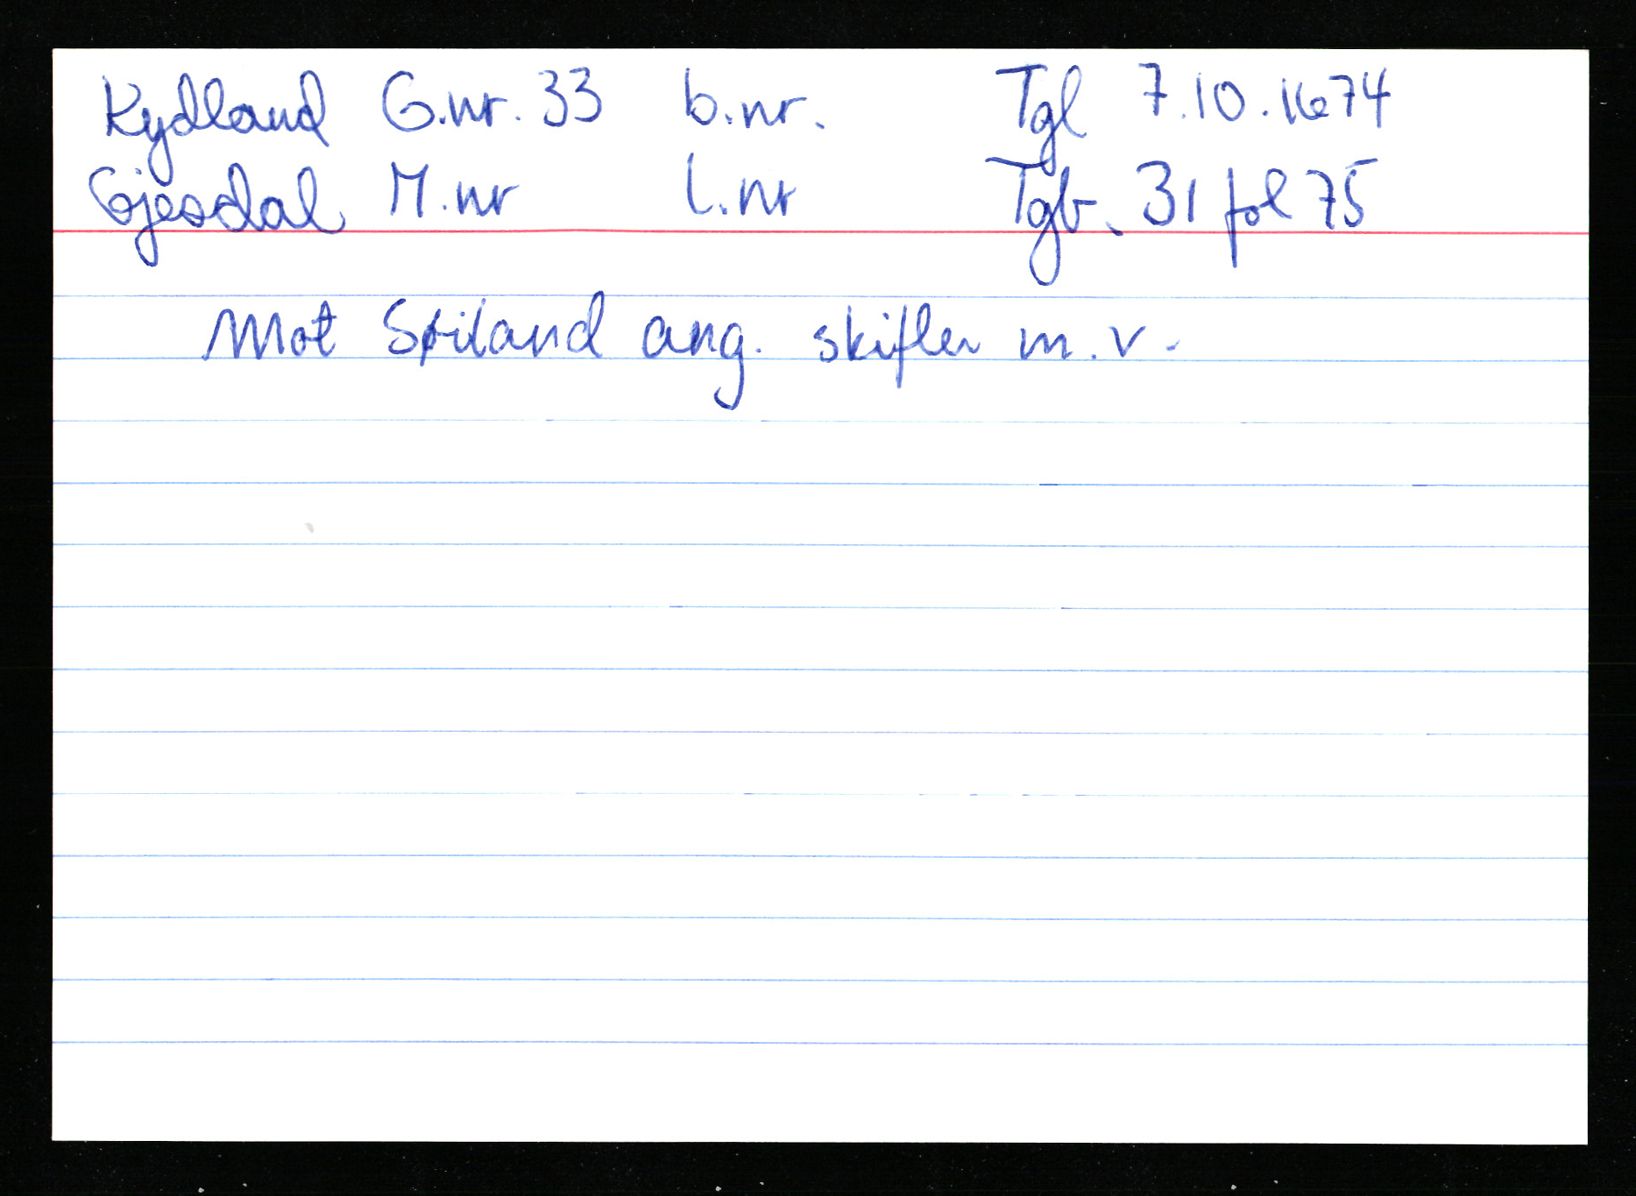 Kydland G.nr. 33 b.nr. Tgl 7.10.1674
Gjesdal M.nr l.nr Tgb. 31 fol 75
Mot Søiland ang. skifter m.v.